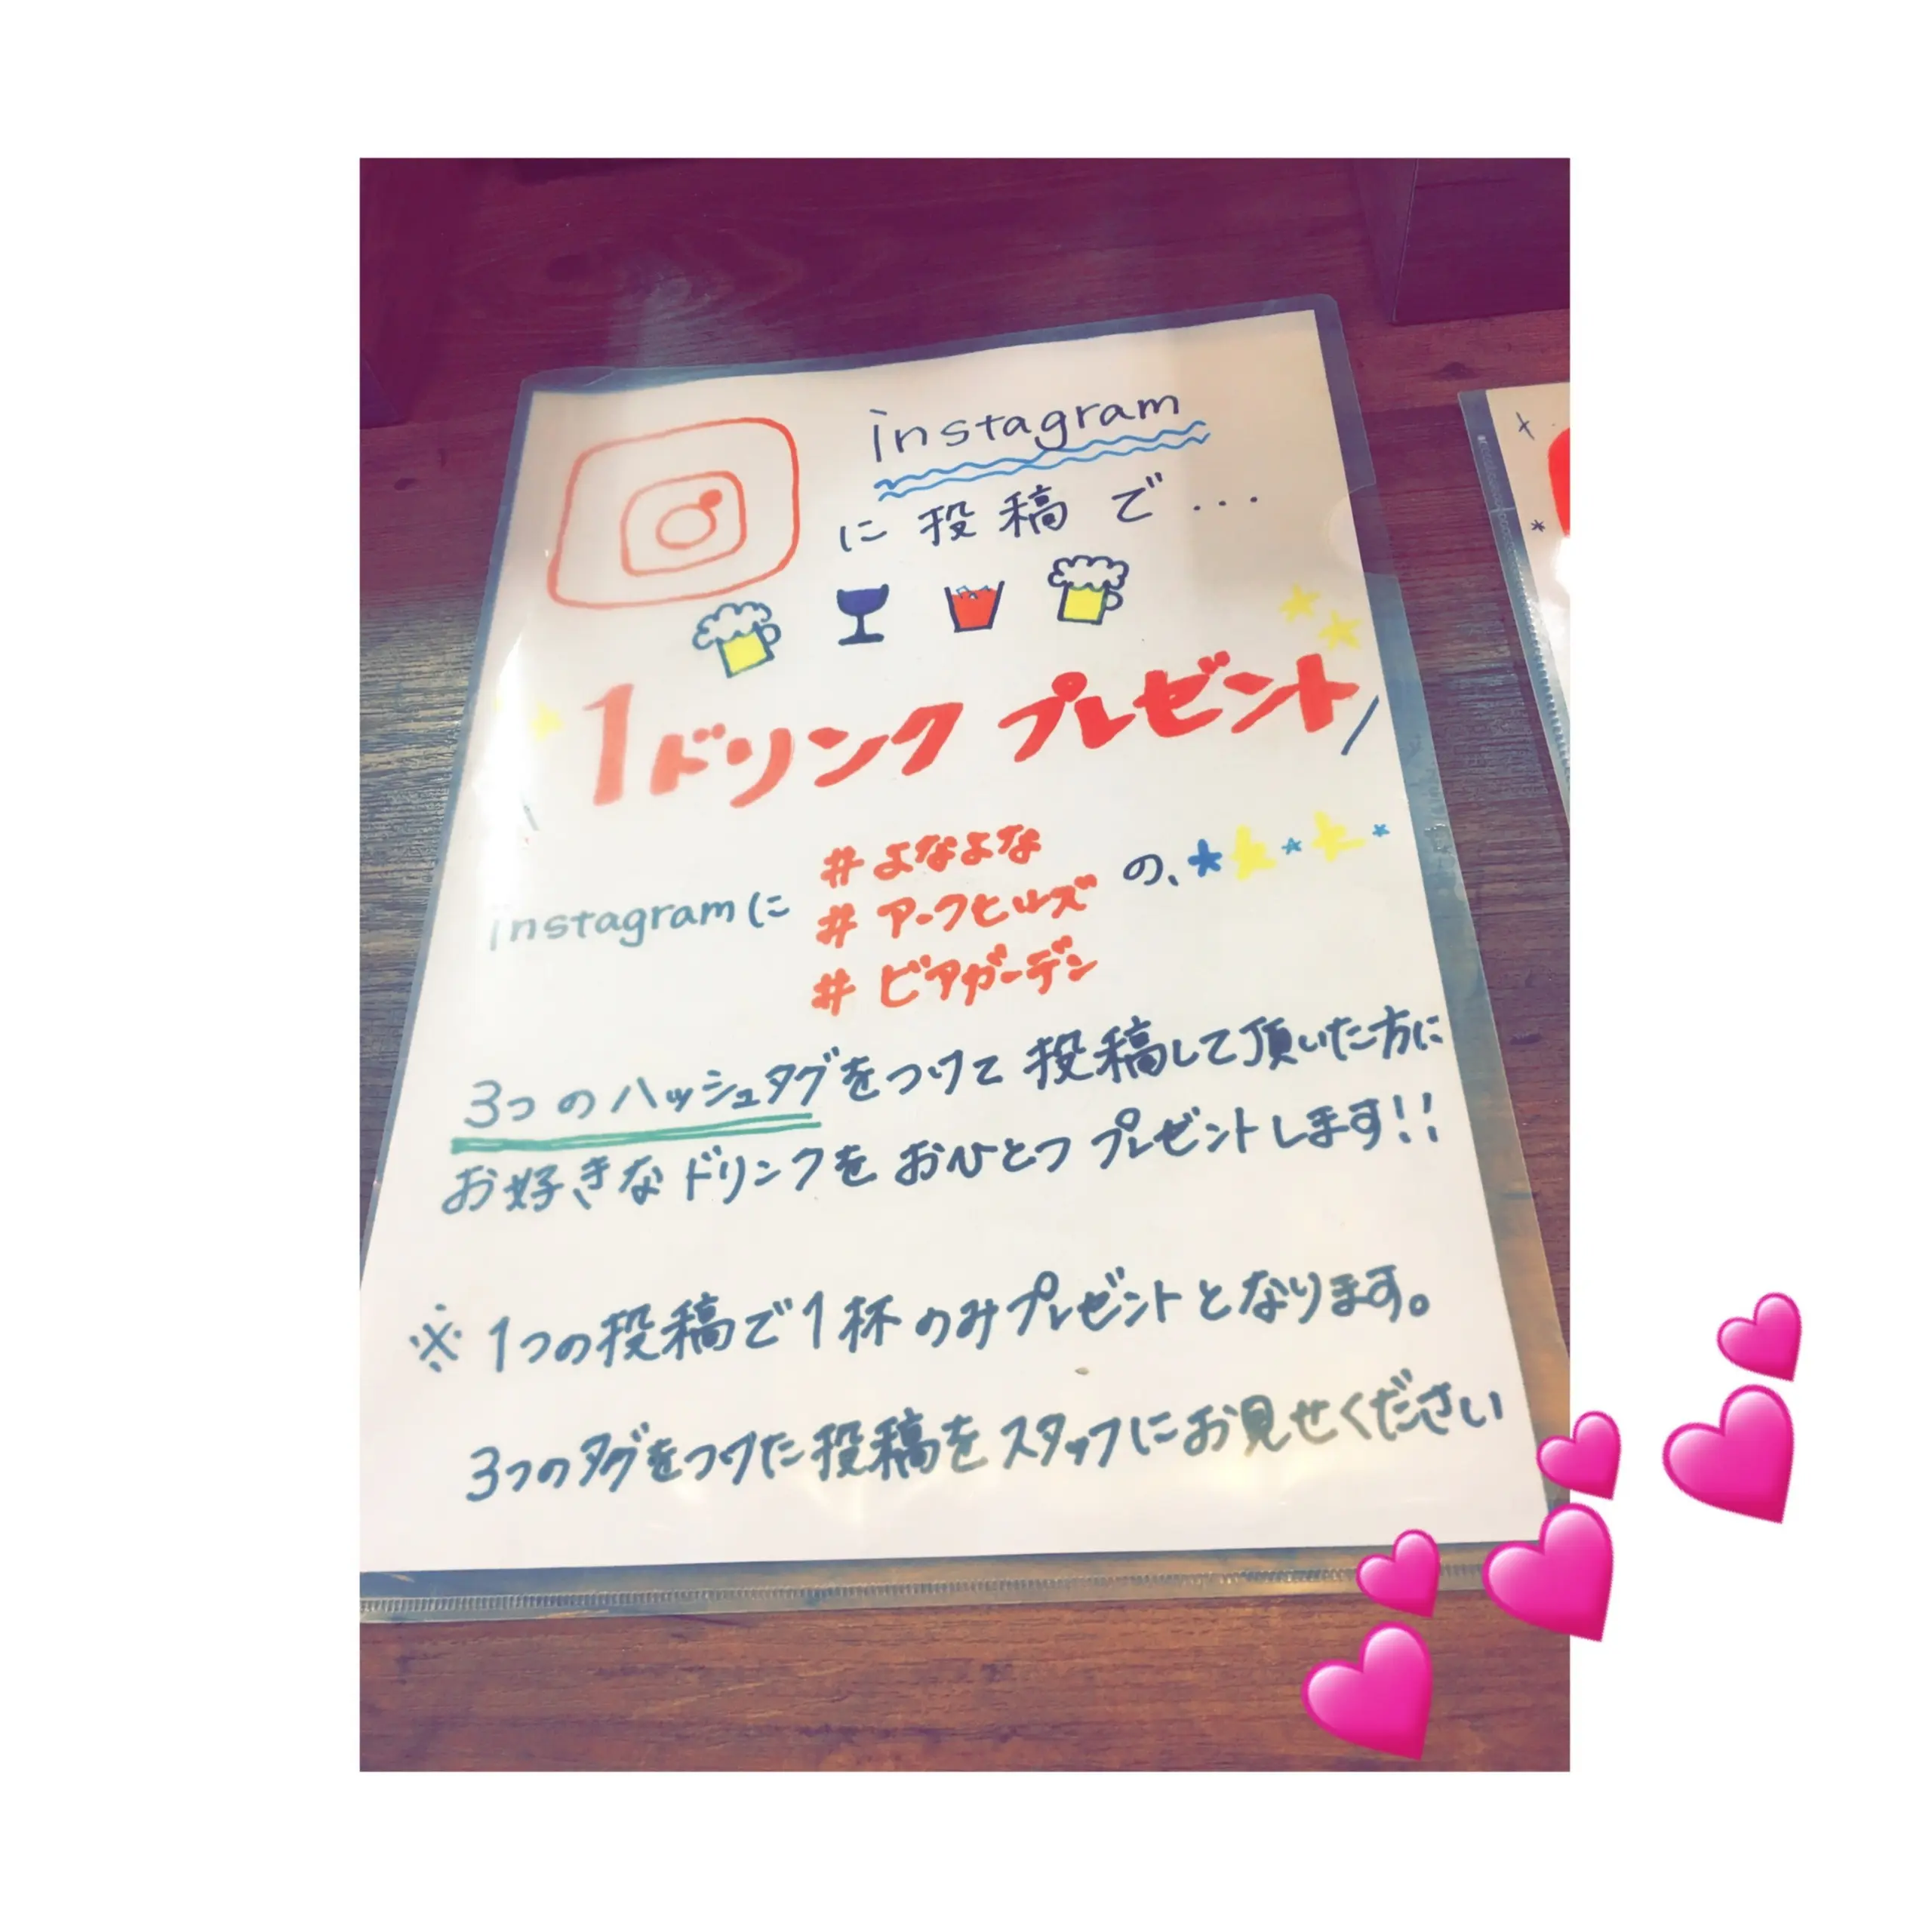 instagram
に投稿で...
1ドリンク プレゼント
#よなよな
instagramに #アークヒルズ の、
#ビアガーデン
3つのハッシュタグをつけて投稿して頂いた方に
お好きなドリンクをおひとつプレゼントします!!
※1つの投稿で1杯のみプレゼントとなります。
3つのタグをつけた投稿をスタッフにお見せください